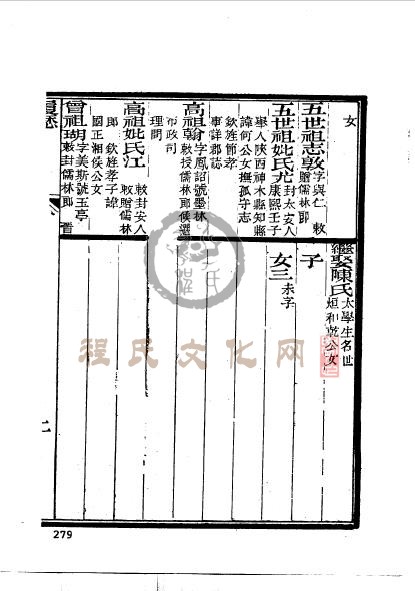 女
繼娶陳氏 太學生名世
烜和乾公女
子
女三 未字
五世祖志敦 字與仁 敕
贈儒林郎
五世祖妣氏尤 封太安人
康熙壬子
舉人陝西神木縣知縣
諱何公女撫孤守志
欽旌節孝
事詳郡誌
高祖翰 字鳳詔號墨林
敕授儒林郎候選
布政司
理問
高祖妣氏江 敕封安人
敕贈儒林
郎 欽旌孝子諱
國正湘侯公女
曾祖瑚 字美斯號玉亭
敕封儒林郎 晋
程氏文化网
279